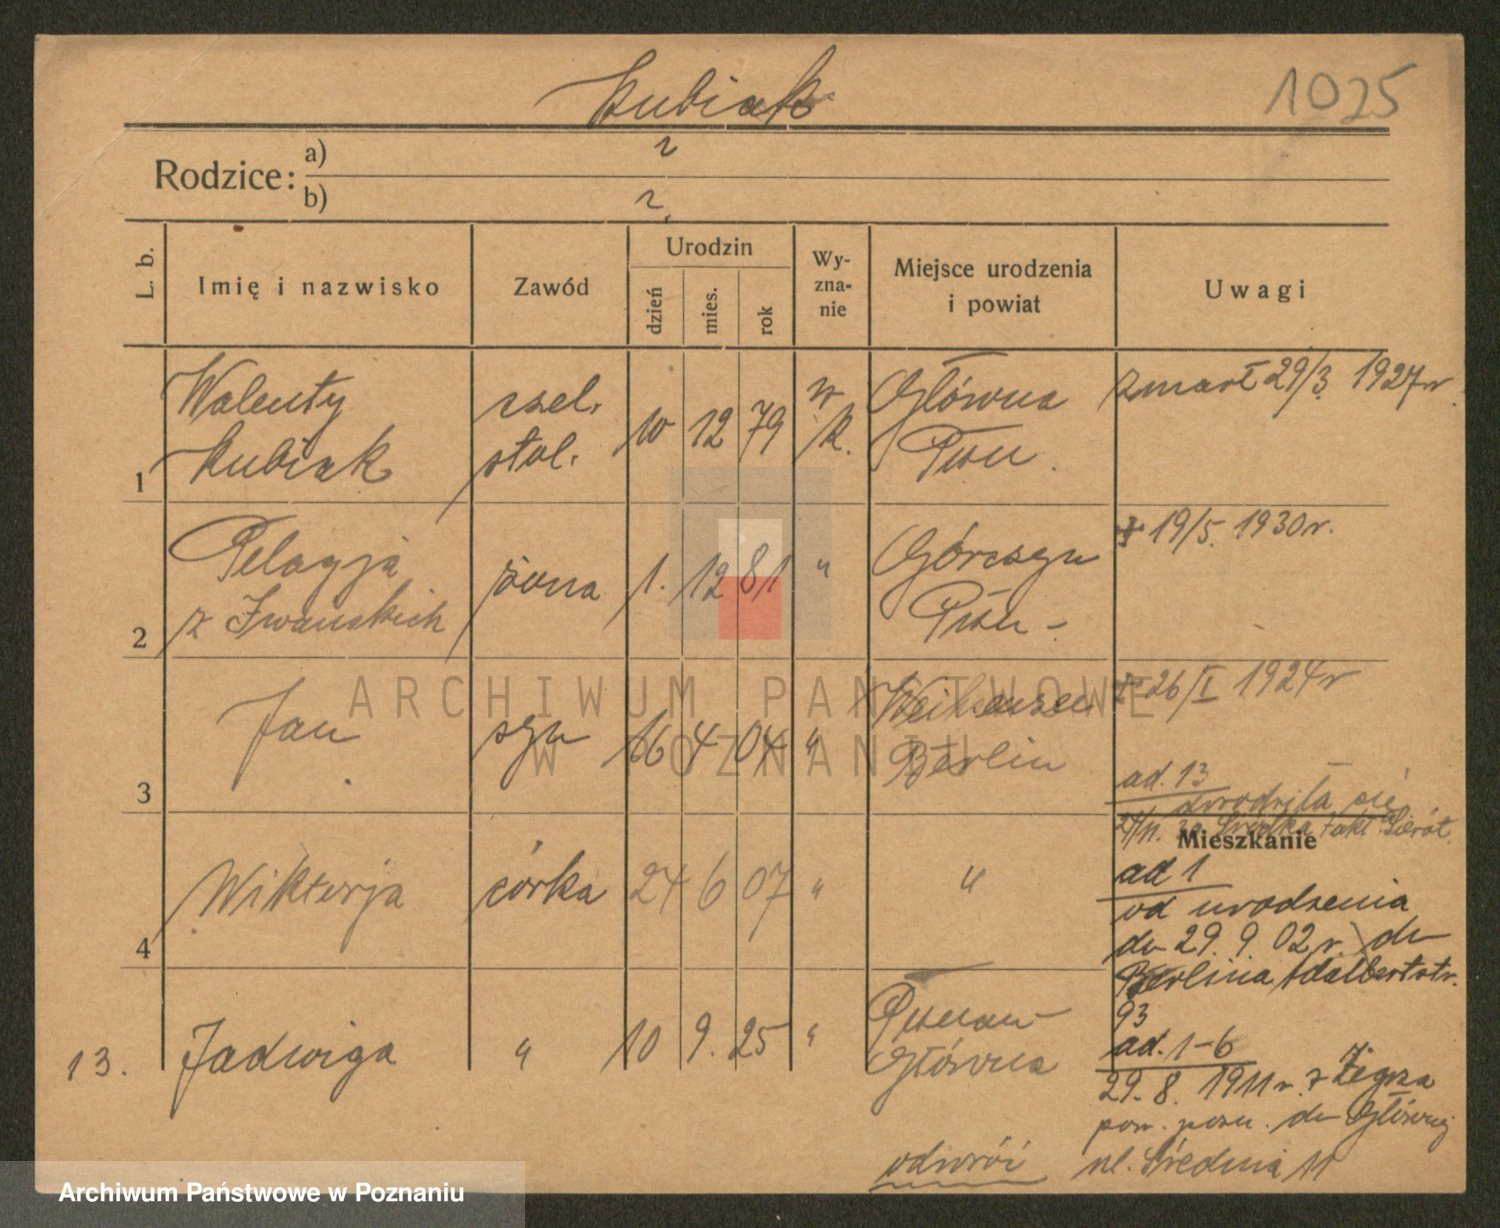 Kubiak
1025
Rodzice:
a) ?
b) ?
L. b.
Imię i nazwisko
Zawód
Urodzin
dzień
mies.
rok
Wy-
zna-
nie
Miejsce urodzenia
i powiat
Uwagi
Walenty czel. 10 12 79 r. Główna zmarł 29/3 1927 r.
1 Kubiak stol. k. Pozn.
Pelagja żona 1. 12 81 " Górczyn + 19/5. 1930 r.
2 z Iwańskich Pozn -
Jan syn 16 4 04 " Weihensee + 26/I 1924 r
3 Berlin
ad. 13
się
Mieszkanie
4 Wiktorja córka 24 6 07 " "
ad 1
od urodzenia
do 29. 9. 02 r. do
Berlina Adalbertstr.
93
13. Jadwiga " 10 9. 25 " Poznań
Główna
ad. 1-6
29. 8. 1911 r. z Żegrza
pow. pozn. do Główny
odwróć ul. Średnia 11
ARCHIWUM PAŃSTWOWE
W POZNANIU
Archiwum Państwowe w Poznaniu